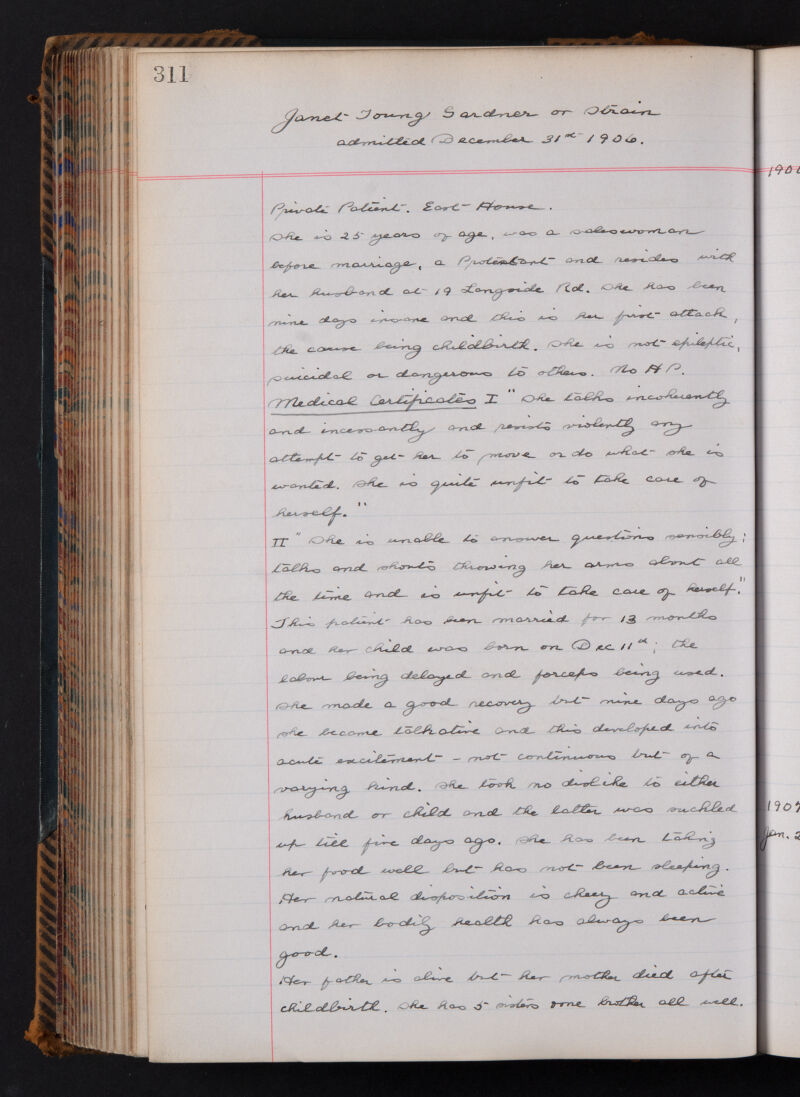 311
Janet Young Gardner or Strain
admitted December 31st 1906.
1906
Private Patient. East House.
She is 25 years of age, was a saleswoman
before marriage, a Protestant and resides with
her husband at 19 Langside Rd. She has been
nine days insane and this is her first attack,
the cause being childbirth. She is not epileptic,
suicidal or dangerous to others. No H P.
Medical Certificates I " She talks incoherently
and incessantly and resists violently any
attempt to get her to move or do what she is
wanted. She is quite unfit to take care of
herself."
II " She is unable to answer questions sensibly;
talks and shouts throwing her arms about all
the time and is unfit to take care of herself."
This patient has been married for 13 months
and her child was born on Dec 11th; the
labour being delayed and forceps being used.
She made a good recovery but nine days ago
she became talkative and this developed into
acute excitement - not continuous but of a
varying kind. She took no dislike to either
husband or child and the latter was suckled
up till five days ago. She has been taking
her food well but has not been sleeping.
Her natural disposition is cheery and active
and her bodily health has always been
good.
Her father is alive but her mother died after
childbirth. She has 5 sisters & one brother all well.
1907
Jan. 2